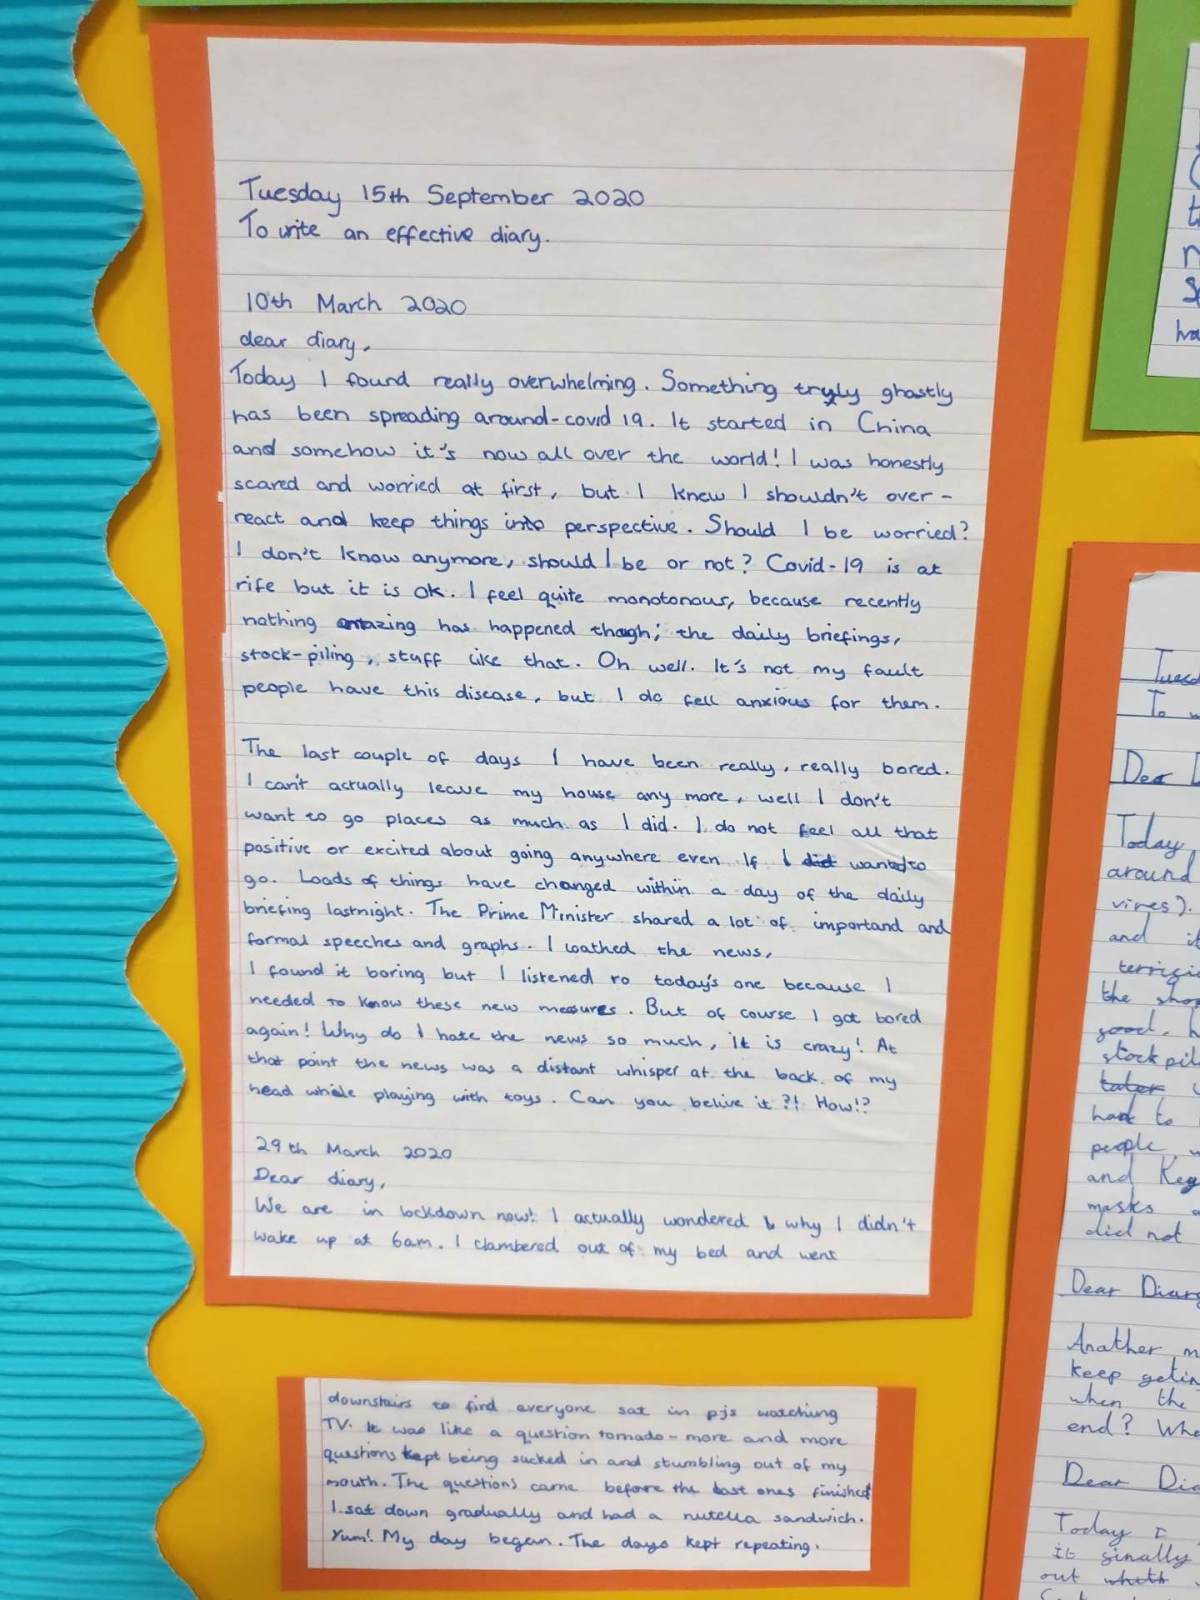 Tuesday 15th September 2020
To write an effective diary.
10th March 2020
dear diary,
Today I found really overwhelming. Something tryly ghastly
has been spreading around-covid 19. It started in China
and somehow it's now all over the world! I was honestly
scared and worried at first, but I knew I shouldn't over-
react and keep things into perspective. Should I be worried?
I don't know anymore, should I be or not? Covid-19 is at
rife but it is ok. I feel quite monotonous, because recently
nothing amazing has happened though; the daily briefings,
stock-piling, stuff like that. Oh well. It's not my fault
people have this disease, but I do fell anxious for them.
The last couple of days I have been really, really bored.
I can't actually leave my house any more, well I don't
want to go places as much as I did. I do not feel all that
positive or excited about going anywhere even If I did wanted to
go. Loads of things have changed within a day of the daily
briefing lastnight. The Prime Minister shared a lot of importand and
formal speeches and graphs. I loathed the news,
I found it boring but I listened ro today's one because I
needed to know these new measures. But of course I got bored
again! Why do I hate the news so much, it is crazy! At
that point the news was a distant whisper at the back of my
head while playing with toys. Can you belive it?! How!?
29th March 2020
Dear diary,
We are in lockdown now! I actually wondered why I didn't
wake up at 6am. I clambered out of my bed and went
downstairs to find everyone sat in pjs watching
TV. It was like a question tornado - more and more
questions kept being sucked in and stumbling out of my
mouth. The questions came before the last ones finished
I sat down gradually and had a nutella sandwich.
Yum! My day began. The days kept repeating.
Tuesd
To w
Dear D
Today,
around
vires).
and it
terrigi
the shop
good. h
stockpil
later
had to
people, w
and Key
masks a
did not
Dear Diary
Another m
keep getin
when the
end? Whe
Dear Dia
Today I
it ginally
out